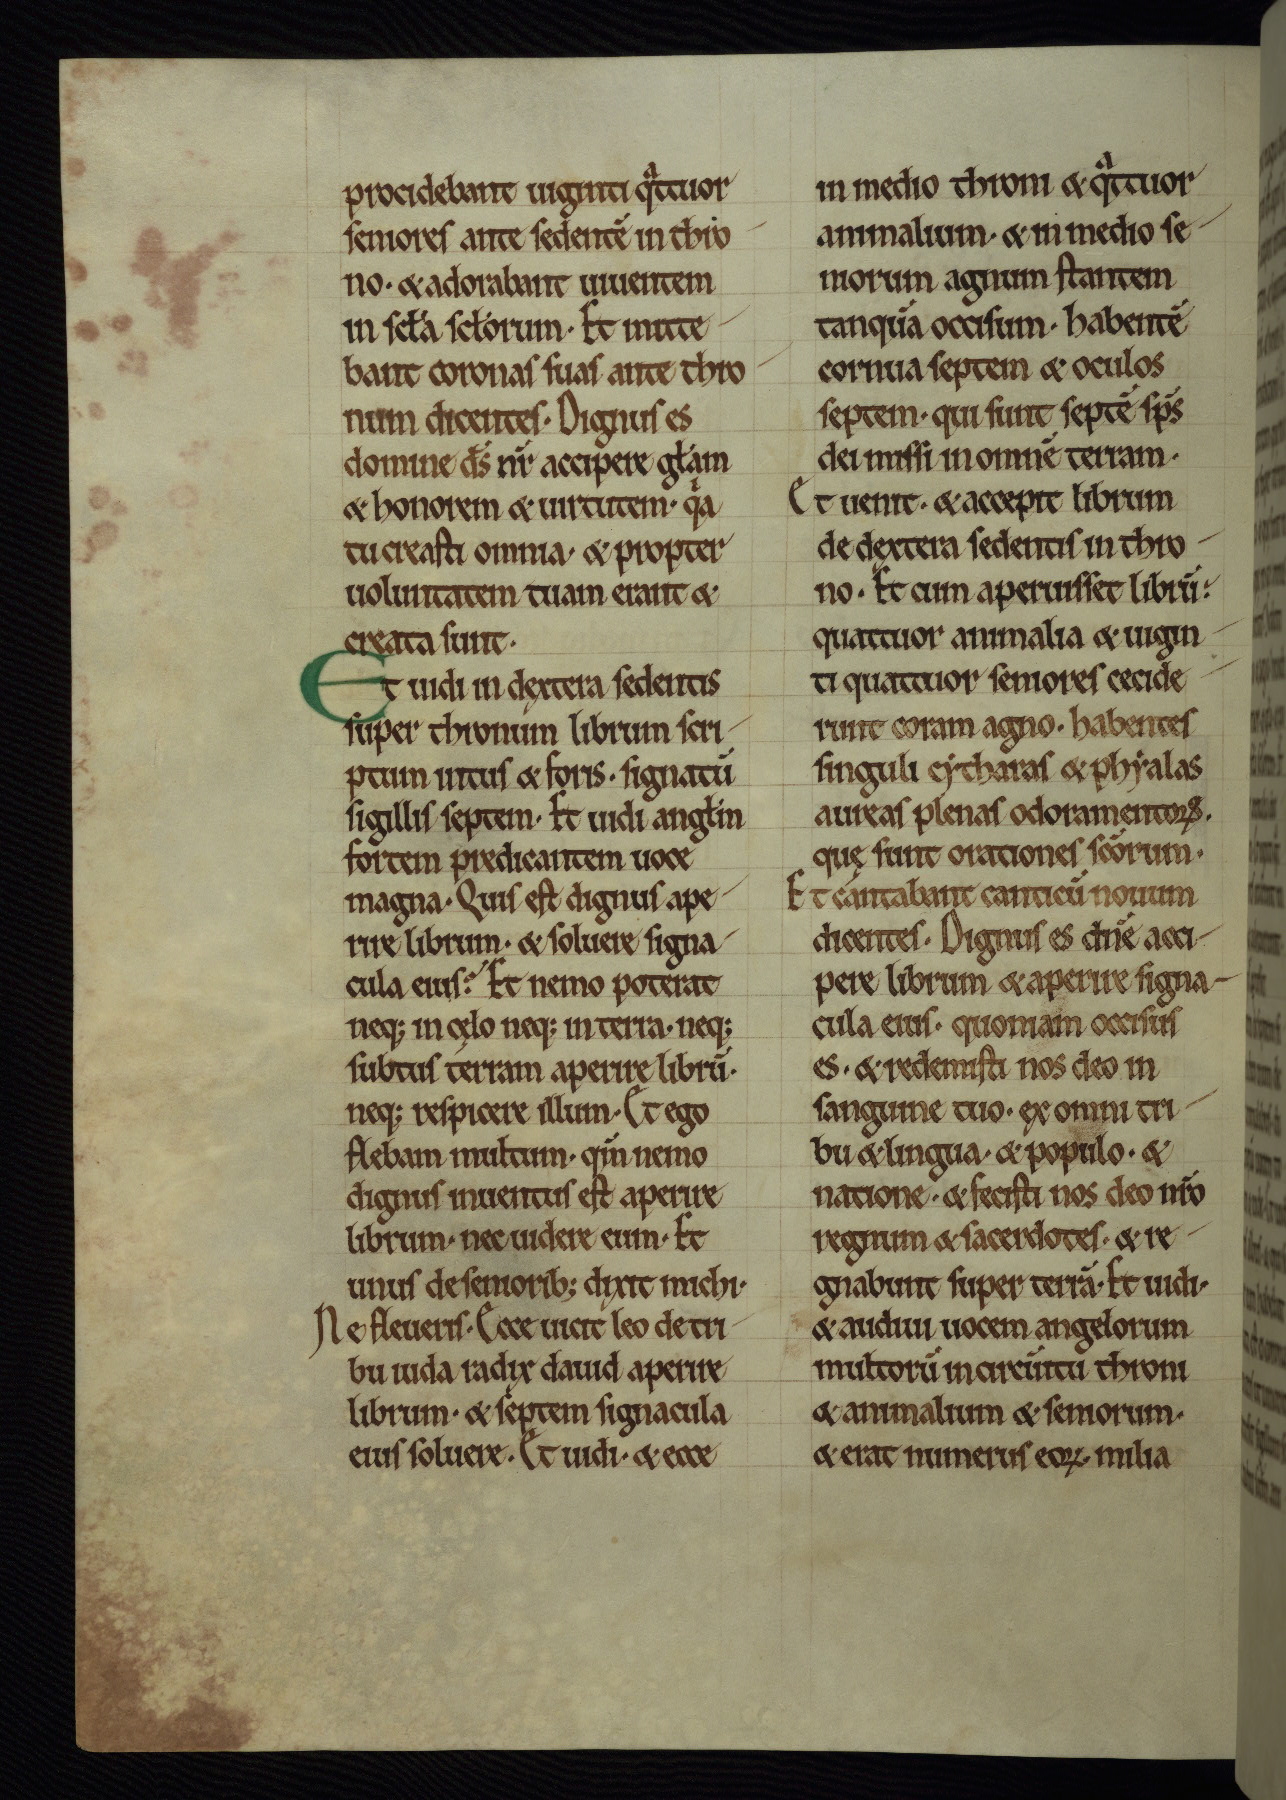 procidebant uiginti qͣttuor
seniores ante sedentē in thro
no· & adorabant uiuentem
in scła scłorum· Et mitte
bant coronas suas ante thro
num dicentes· Dignus es
domine ds̄ nr̄ accipere głam
& honorem & uirtutem· qͣa
tu creasti omnia· & propter
uoluntatem tuam erant &
creata sunt·
Et uidi in dextera sedentis
super thronum librum scri
ptum intus & foris· signatū
sigillis septem· Et uidi angłm
fortem predicantem uoce
magna· Quis est dignus ape
rire librum· & soluere signa
cula eius? Et nemo poterat
neq; in cęlo neq; in terra· neq;
subtus terram aperire librū·
neq; respicere illum· Et ego
flebam multum· qm̄ nemo
dignus inuentus est aperire
librum· nec uidere eum· Et
unus de seniorib; dixit michi·
Ne fleueris· Ecce uicit leo de tri
bu iuda radix dauid aperire
librum· & septem signacula
eius soluere· Et uidi· & ecce
in medio throni & qͣttuor
animalium· & in medio se
niorum agnum stantem
tanquā occisum· habentē
cornua septem & oculos
septem· qui sunt septē sps̄
dei missi in omnē terram·
Et uenit· & accepit librum
de dextera sedentis in thro
no· Et cum aperuisset librū:
quattuor animalia & uigin
ti quattuor seniores cecide
runt coram agno· habentes
singuli cytharas & phyalas
aureas plenas odoramentoꝝ·
quę sunt orationes scōrum·
Et cantabant canticū nouum
dicentes· Dignus es dn̄e acci
pere librum & aperire signa
cula eius· quoniam occisus
es· & redemisti nos deo in
sanguine tuo· ex omni tri
bu & lingua· & populo· &
natione· & fecisti nos deo nr̄o
regnum & sacerdotes· & re
gnabunt super terrā· Et uidi·
& audiui uocem angelorum
multorū in circūitu throni
& animalium & seniorum·
& erat numerus eoꝝ· milia